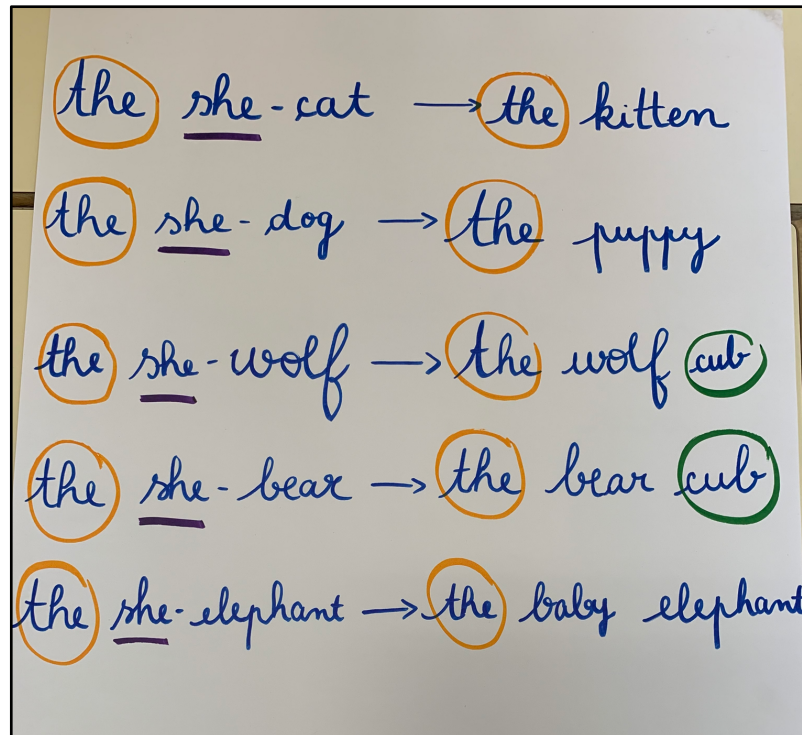 the she-cat → the kitten
the she-dog → the puppy
the she-wolf → the wolf cub
the she-bear → the bear cub
the she-elephant → the baby elephant